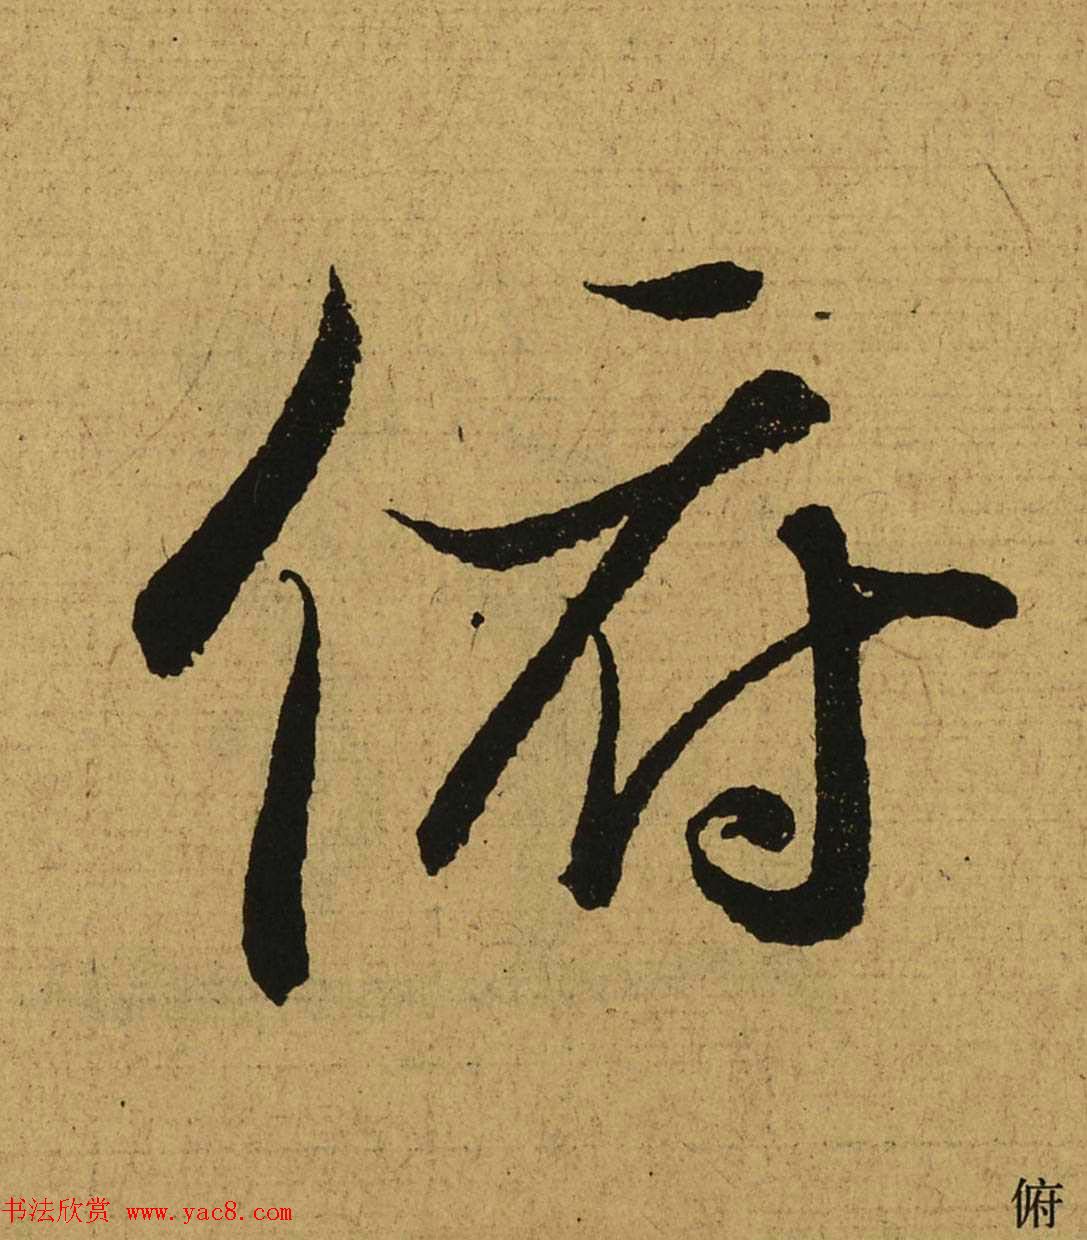 俯
书法欣赏 www.yac8.com
俯